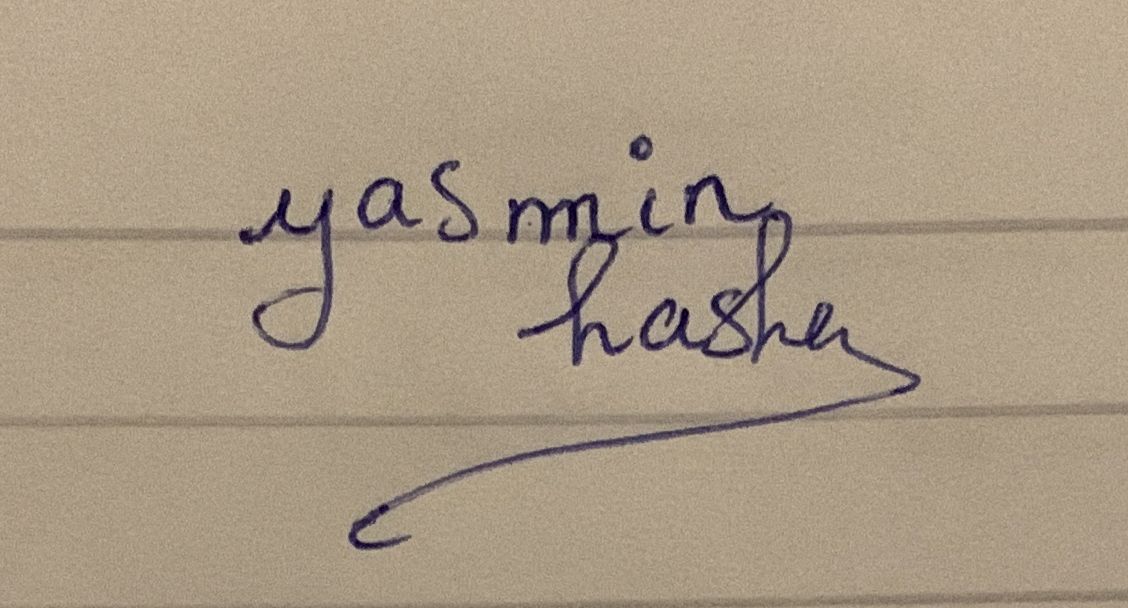 yasmin
hasha